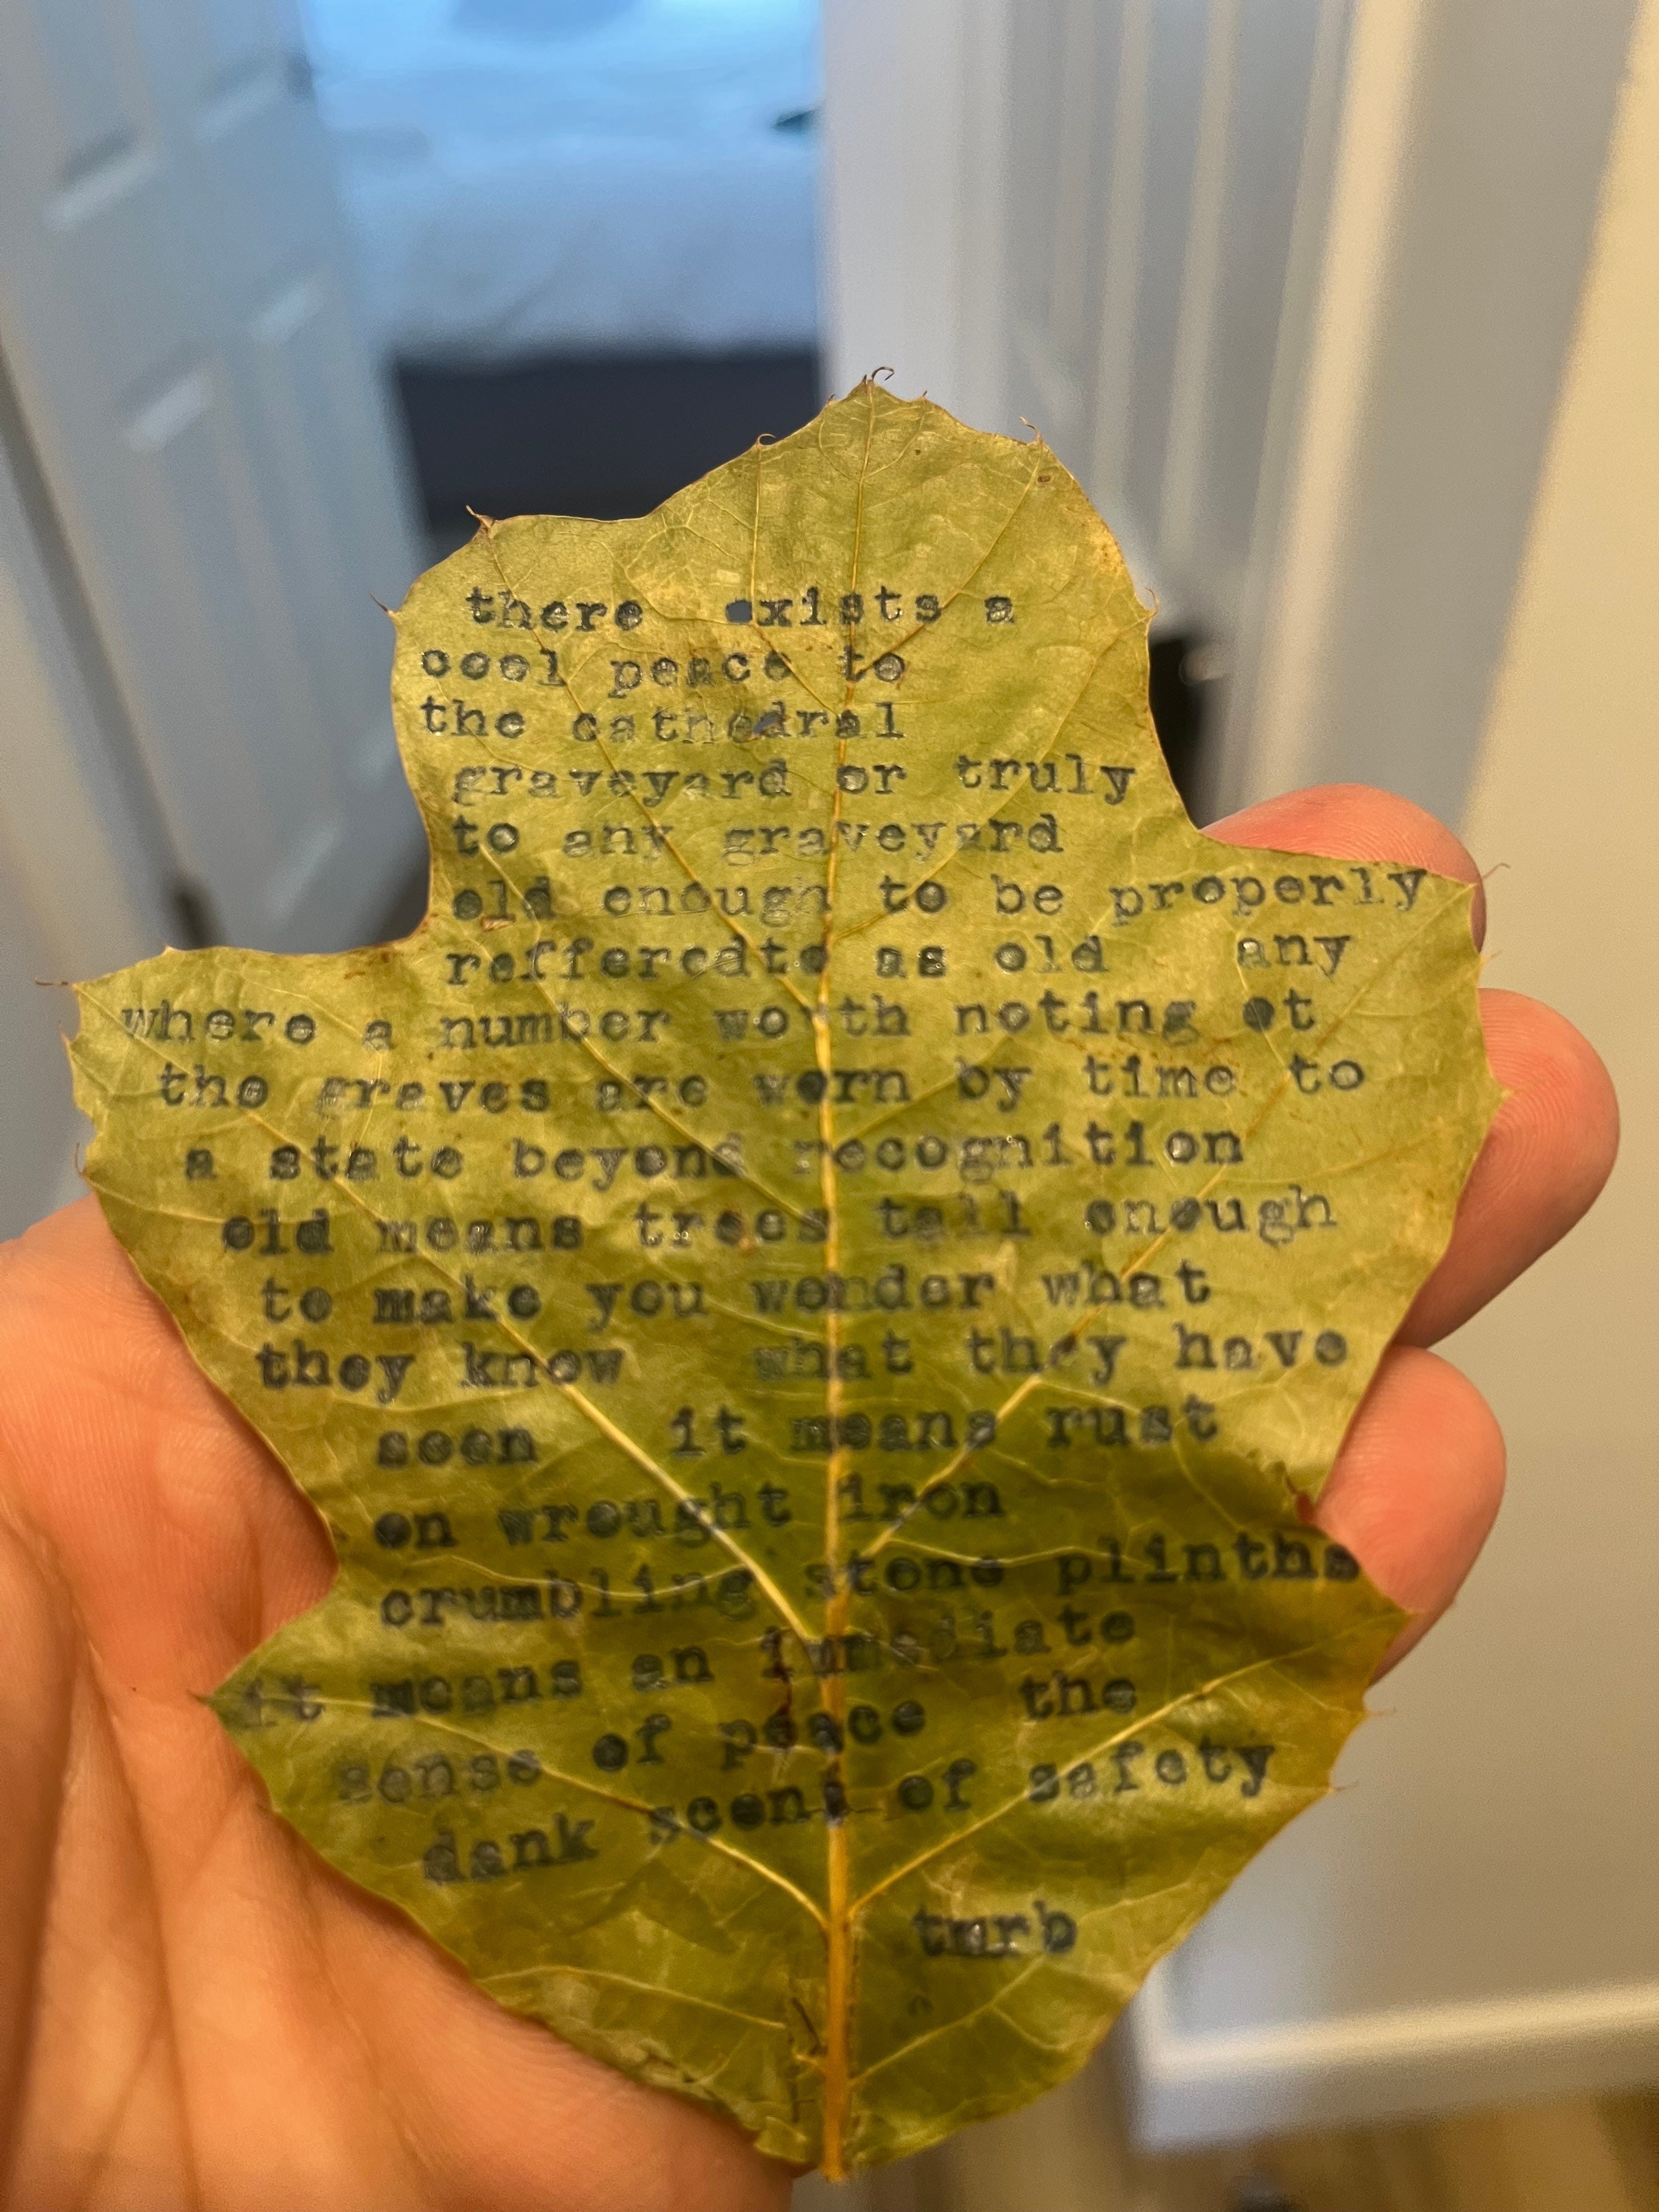 there exists a
cool peace to
the cathedral
graveyard or truly
to any graveyard
old enough to be properly
refferedto as old any
where a number worth noting ot
the graves are worn by time to
a state beyond recognition
old means trees tall enough
to make you wonder what
they know what they have
seen it means rust
on wrought iron
crumbling stone plinths
it means an immediate
sense of peace the
dank scent of safety
tmrb